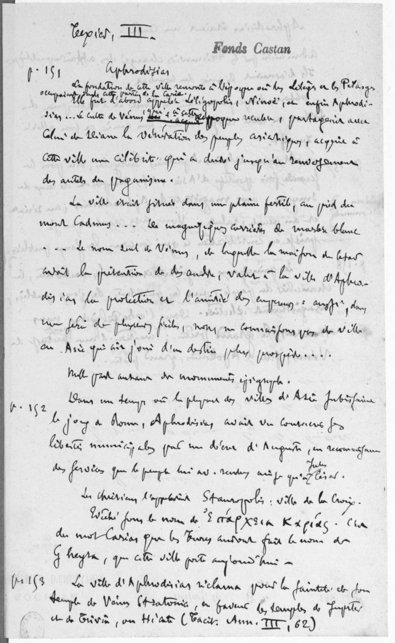 Texier, III.
Fonds Castan
p. 151 Aphrodisias
La fondation de cette ville remonte à l'époque où les Lélèges et les Pélasges
occupaient seuls cette partie de la Carie.
Elle fut d'abord appelée Lélégopolis, Ninoë, et enfin Aphrodi-
sias ... Le culte de Vénus époque reculée, partageait avec
celui de Diane la vénération des peuples asiatiques, acquit à
cette ville une célébrité qui a duré jusqu'au renversement
des autels du paganisme.
La ville était située dans une plaine fertile, au pied du
mont Cadmus ... de magnifiques carrières de marbre blanc
. ... Le nom seul de Vénus, de laquelle la maison de César
avait la prétention de descendre, valut à la ville d'Aphro-
disias la protection et l'amitié des empereurs : aussi, dans
une série de plusieurs siècles, nous ne connaissons pas de ville
en Asie qui ait joui d'un destin plus prospère ....
Nulle part autant de monuments épigraph.
p. 152 Dans un temps où la plupart des villes d'Asie subissaient
le joug de Rome, Aphrodisias avait vu conserver ses
libertés municipales par un décret d'Auguste, en reconnaissance
des services que le peuple lui av. rendus ainsi qu'à Jules César.
Les chrétiens l'appelèrent Stauropolis : ville de la Croix.
Evêché sous le nom de Ἐπάρχεια Καρίας. C'est
du mot Carias que les Turcs auront fait le nom de
Gheyra, que cette ville porte aujourd'hui -
p. 153 La ville d'Aphrodisias réclama pour la sainteté de son
temple de Vénus Stratonice, en faveur des temples de Jupiter
et de Trivia, ou Hécate (Tacit. Ann. III, 62)